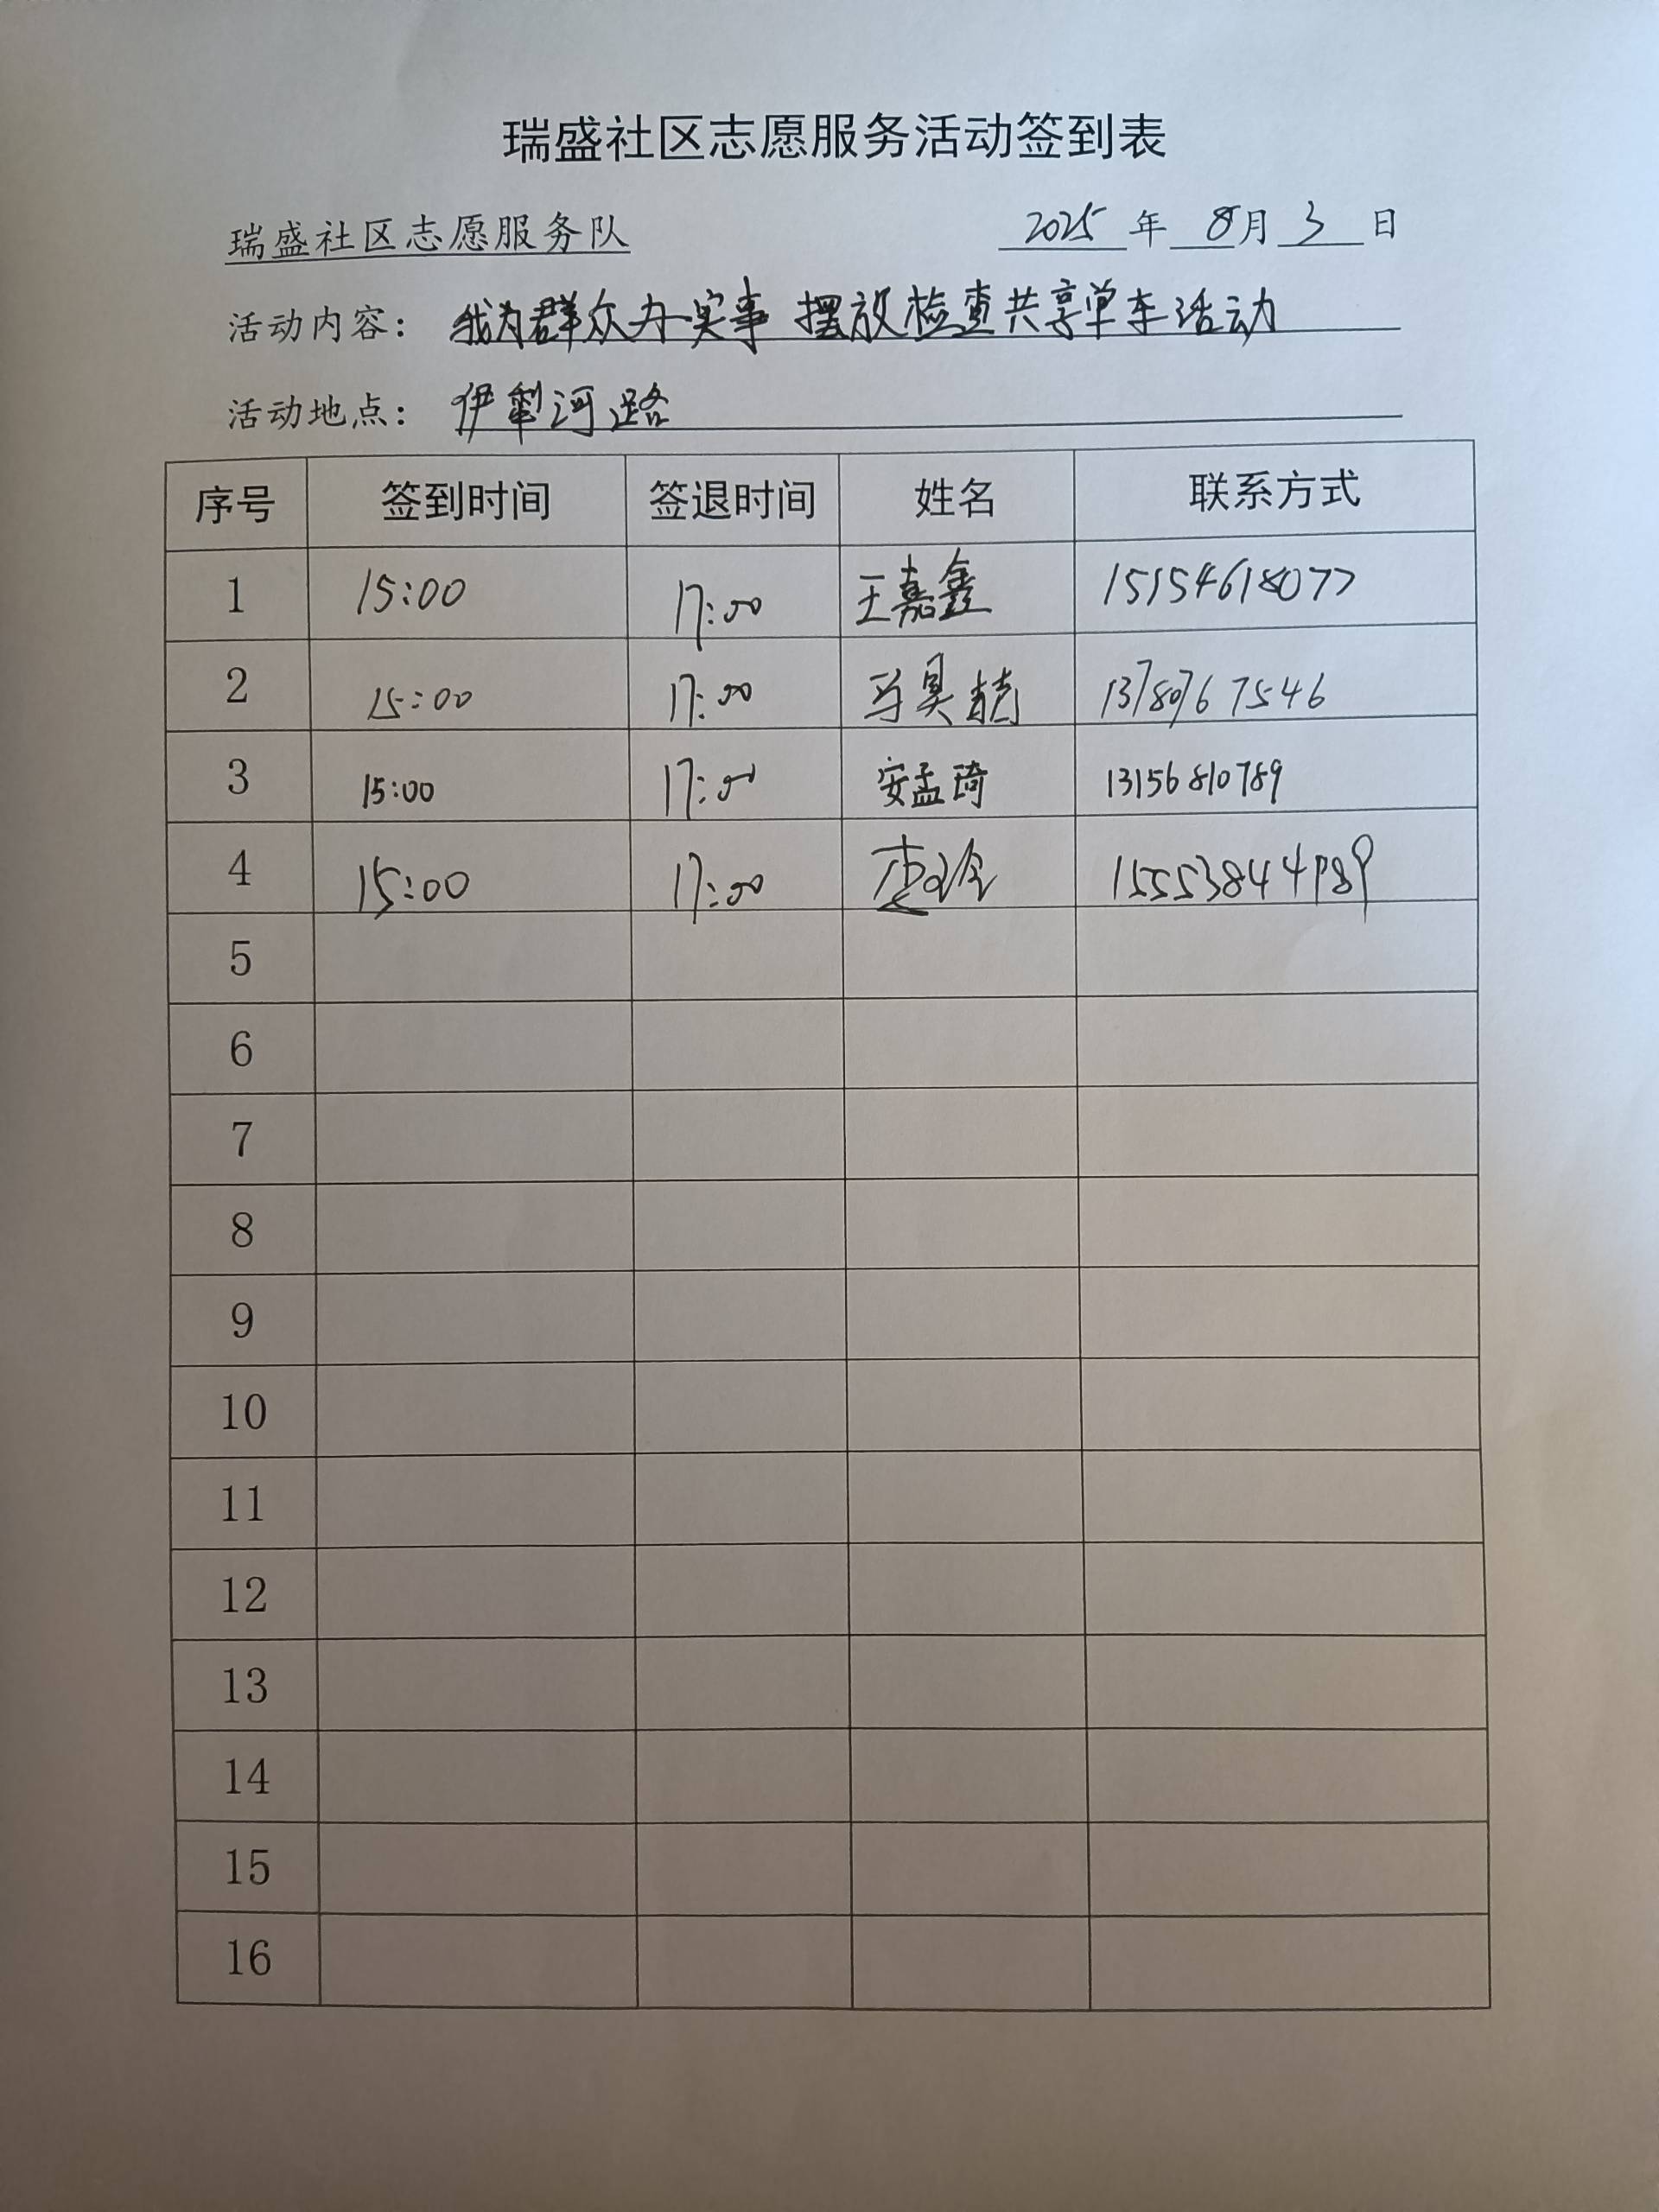 瑞盛社区志愿服务活动签到表
瑞盛社区志愿服务队 2025 年 8月 3 日
活动内容： 我为群众办实事 摆放检查共享单车活动
活动地点： 伊犁河路
序号 签到时间 签退时间 姓名 联系方式
1 15:00 17:00 王嘉鑫 15154618077
2 15:00 17:00 马昊 13780767546
3 15:00 17:00 安孟琦 13156810789
4 15:00 17:00 15553844989
5
6
7
8
9
10
11
12
13
14
15
16